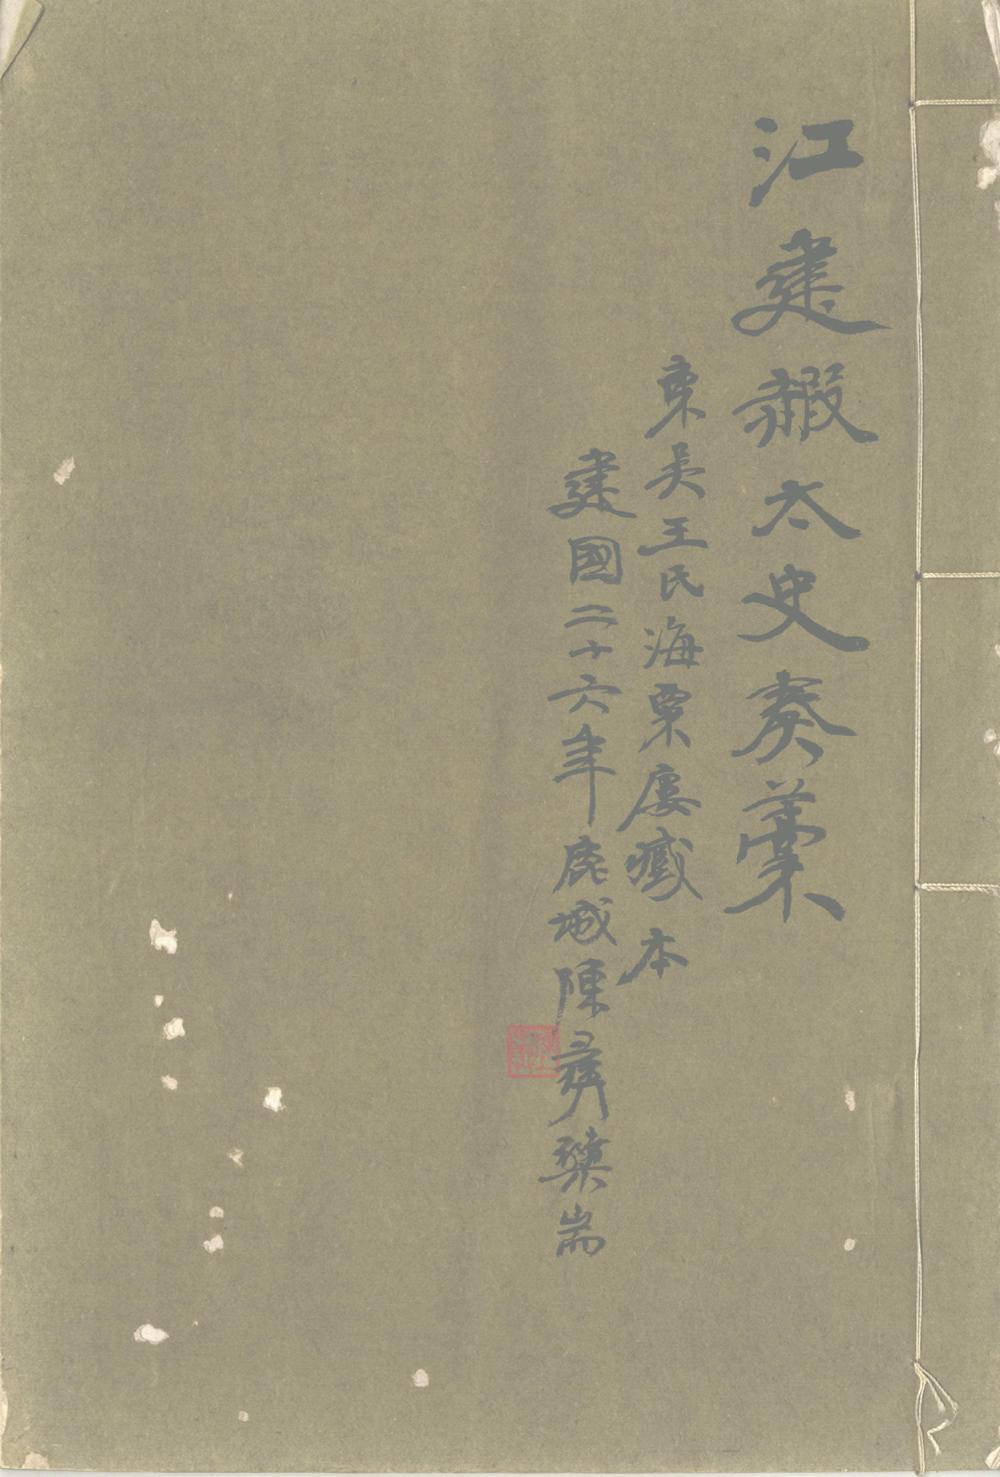 江建赮太史奏藁
東吳王氏海粟廔臧本
建國二十六年鹿城陳彝耑